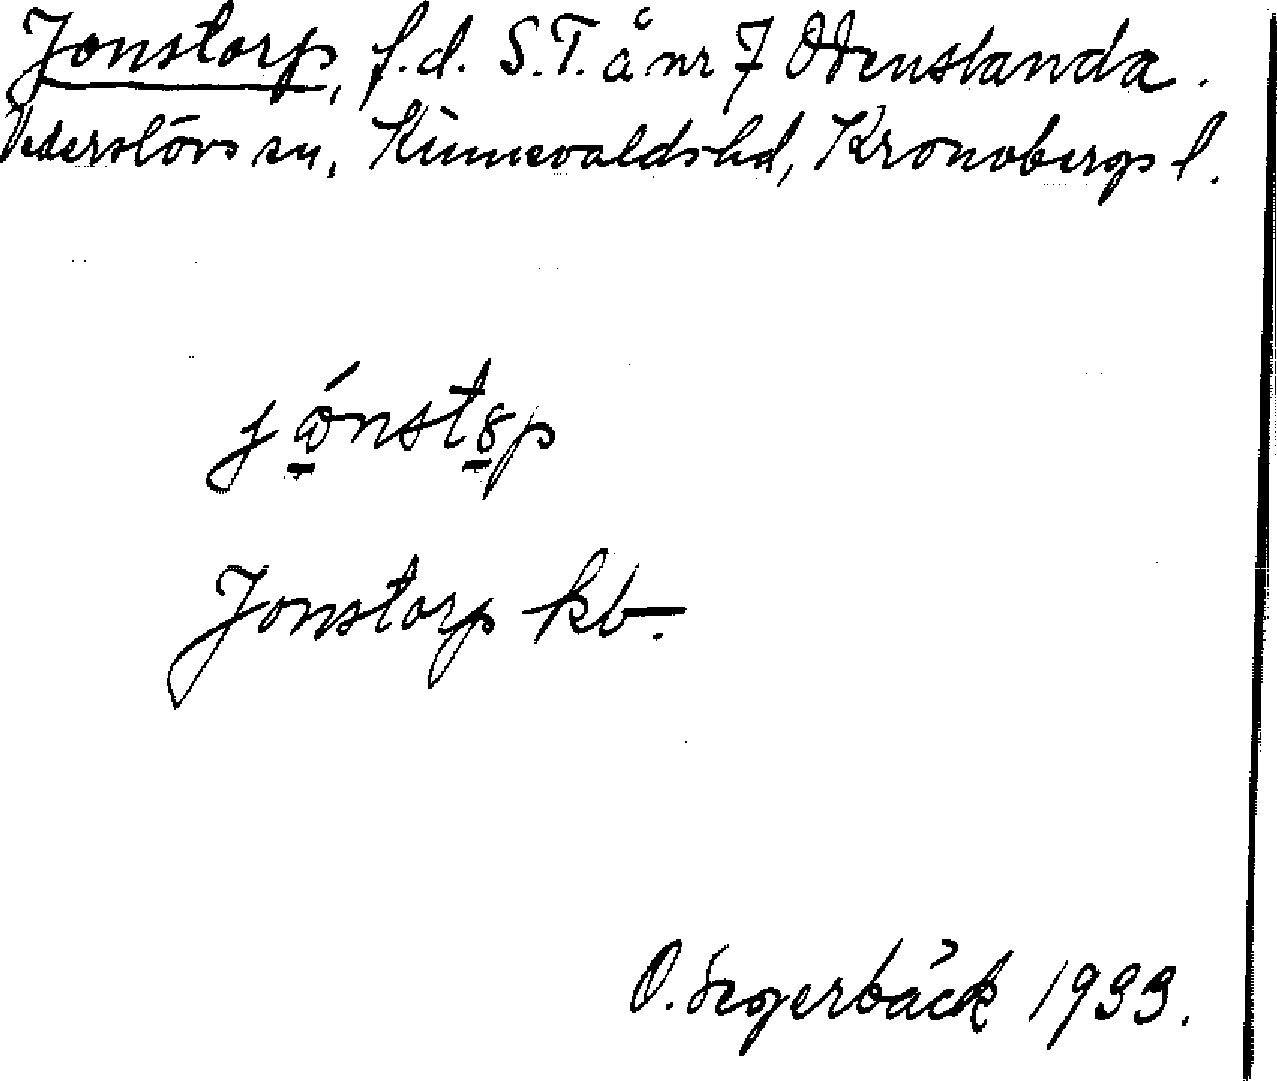 Jonstorp, f.d. S.T. å nr 7 Odenslanda.
Vederslövs sn, Kinnevaldshd, Kronobergs l.
Jonstorp kb.
O. Segerbäck 1933.